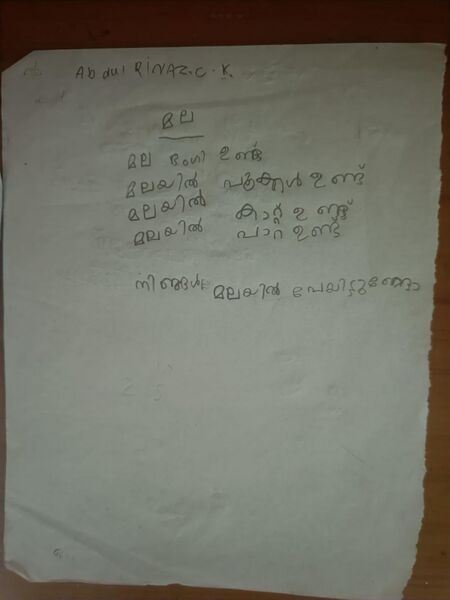 Abdul RiNAZ.C.K.
മല
മല ഭംഗി ഉണ്ട്
മലയിൽ പൂക്കൾ ഉണ്ട്
മലയിൽ കാറ്റ് ഉണ്ട്
മലയിൽ പാറ ഉണ്ട്
നിങ്ങൾ മലയിൽ പേയിട്ടുണ്ടോ